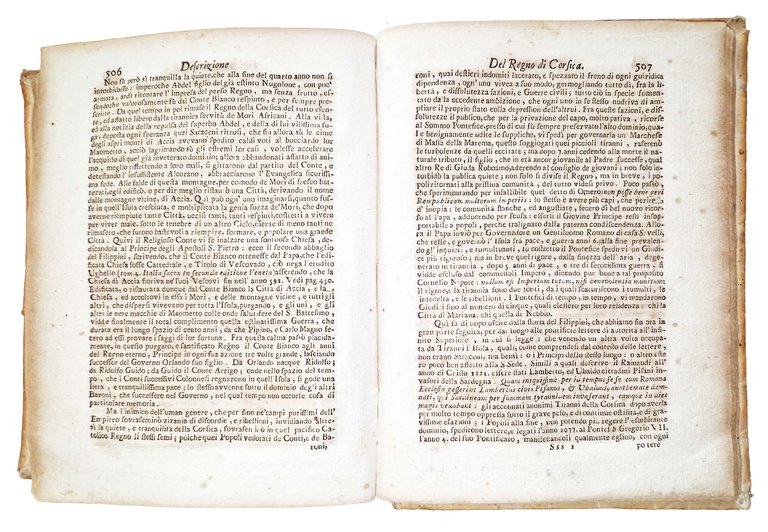 506
Descrizione
Non fù però sì tranquilla la quiete, che alla fine del quarto anno non si
intorbidasse; imperoche Abdel figlio del già estinto Nugolone, con poc'
armata, ardì ritentare l'impresa del perso Regno, ma senza frutto, es-
sendoche valorosamente fù dal Conte Bianco respinto, e per sempre pre-
cluso. Da quel tempo in poi rimase il Regno della Corsica del tutto essen-
te, ed affatto libero dalla tirannica servitù de Mori Africani. Alla vista,
ed alla notitia della repulsa del superbo Abdel, e della di lui vilissima fu-
ga, deposta ogni speranza quei Saraceni ritrosi, che fin allora sù le cime
degli aspri monti di Accia avevano spedito caldi voti al bucciardo lor
Maometto, acciò lagrimando sù gli estremi lor casi, volesse accelerare
l'acquisto di quel già invetterato dominio; allora abbandonati affatto di ani-
mo, meglio riflettendo a loro mali, si gittarono dal partito del Conte, e
detestando l'insussistente Alcorano, abbracciarono l'Evangelica sicurissi-
ma fede. Alle falde di queste montagne, per comodo de Mori di fresco bat-
tezati, gli edificò, e per dir meglio risarcì una Città, derivando il nome
dalle montagne vicine, di Accia. Quì può ogn' uno imaginarsi, quanto fos-
se in quell'Isola cresciuta, e moltiplicata la genia sozza de'Mori, che dopo
averne riempiute tante Città, uccisi tanti, tanti respinti, costretti a vivere
per viver male, sotto le tenebre di un altro Cielo, niente di meno tanti ne
rimasero che furono bastevoli a riempire, formare, e popolare una grande
Città. Quivi il Religioso Conte vi fè inalzare una sontuosa Chiesa, de-
dicandola al Principe degli Apostoli S. Pietro: ecco il secondo abbaglio
del Filippini, scrivendo, che il Conte Bianco ottenesse dal Papa, che l'edi-
ficata Chiesa fosse Cattedrale, e Titolo di Vescovado, ciò nega l'erudito
Ughello (tom. 4. Italia sacra in secunda editione Veneta) asserendo, che la
Chiesa di Accia aveva suoi Vescovi fin nell'anno 591. Vedi pag. 450.
Edificata, o risarcita dunque dal Conte Bianco la Città di Accia, e la
Chiesa, ed accoltovi in essa i Mori, e delle montagne vicine, e tutti gli
altri, che dispersi vivevano per tutta l'Isola, purgando, e gli uni, e gli
altri le nere macchie di Maometto colle onde salutifere del S. Battesimo,
vidde finalmente il total complimento quella ostinatissima Guerra, che
durata era il lungo spazio di cento anni, da che Pipino, e Carlo Magno fece-
ro ad essi provare i saggi di lor fortuna. Fra questa calma passò placida-
mente, in questo purgato, e santificato Regno il Conte Bianco agli anni
del Regno eterno, Principe in ogni sua azione tre volte grande, lasciando
successore del Governo Orlando suo figlio. Da Orlando nacque Ridolfo;
da Ridolfo Guido; da Guido il Conte Arrigo; onde nello spazio del tem-
po, che i Conti successivi Colonnesi regnarono in quell'Isola, si gode una
lieta, e tranquillissima pace; lo stesso avvenne sotto il dominio degl'altri
Baroni, che successero nel Governo, nel qual tempo non occorse cosa di
particolare memoria.
Ma l'inimico dell'uman genere, che per fino ne'campi purissimi dell'
Empireo sovraseminò zizania di discordie, e ribellioni, invidiando altre-
sì la quiete, e tranquilità della Corsica, sovraseminò in quel pacifico Ca-
tolico Regno li stessi semi; poiche quei Popoli vedovati de Conti, e de Ba-
roni,
Del Regno di Corsica.
507
roni, quai destieri indomiti lacerato, e spezzato il freno di ogni giuridica
dipendenza, ogn' uno vivea a suo modo, germogliando tutto dì, fra la li-
bertà, e dissolutezza fazioni, e Guerre civili; tutto ciò in specie fomen-
tato dalla eccedente ambizione, che ogni uno in se stesso nudriva di am-
pliare il proprio stato colla depressione dell'altrui. Fra queste fazioni, e dis-
solutezze il publico, che per la privazione del capo, molto pativa, ricorse
al Sommo Pontefice, presso di cui fù sempre preservato l'alto dominio, qua-
le benignamente udite le suppliche, vi spedì per governarla un Marchese
di Massa della Marema, quello soggiogati quei piccioli tiranni, raserenò
le turbolenze da quelli eccitate; ma dopo 7. anni cedendo alla morte il na-
turale tributo, il figlio, che in età ancor giovanile al Padre successe, qual
altro Re di Giuda Roboamo, aderendo al consiglio de giovani; non solo in-
torbidò la publica quiete; non solo si divise il Regno, ma in breve, i po-
poli ritornati alla pristina comunità, del tutto videsi privo. Poco passò,
che sperimentando per infallibile quel detto di Omero, non posse bene geri
Rempublicam multorum imperiis: e lo stesso è avere più capi, che perire
d'inopia; le comunità stanche, ed angustiate, fecero di bel nuovo ricor-
so al Papa, adducendo per scusa: essersi il Giovine Principe reso inso-
portabile a popoli, perche tralignato dalla paterna condiscendenza. Allo-
ra il Papa inviò per Governadore un Gentiluomo Romano di casa S. velli,
che resse, e governò l'Isola fra pace, e guerra anni 6. alla fine prevalen-
do gl'inquieti, e tumultuanti, fù costretto il Pontefice spedirvi un Giudi-
ce più rigoroso; ma in breve quel rigore, dalla finezza dell'aria, dege-
nerato in tirannia, dopo 5. anni di pace, e non estinta la tirannia, si
vidde escluso dal commessoli Impero, dicendo pur bene a tal proposito
Cornelio Nepote: nullum est Imperium tutum, nisi benevolentia munitum:
il rigore, la tirannia sono due fonti, da i quali scaturiscono i tumulti, le
intestine, e le ribellioni; i Pontefici di tempo, in tempo, vi mandarono
Giudici fino al numero di cinque, quali elessero per loro residenza: chi la
Città di Mariana: chi quella di Nebbio.
Quì fà di uopo uscire dalla storia del Filippini, che abbiamo sin ora in
gran parte seguita, per dar luogo alle pontificie lettere di autorità all'ini-
mito Superiore, in cui si legge, che vivendo un altra volta occupa-
ta da Tiranni l'Isola, i quali, come comprendesi dal contesto delle lettere,
non erano Saraceni, ma bensì: o i Principi dello stesso luogo: o altro este-
ro poco ben affetto alla S. Sede. Simili a quali descrive il Rainaudi all'
anno di Cristo 1221. stati Lamberto, ed Ubaldo cittadini Pisani in-
vasori della Sardegna. Quam iniquissimè per tu tempus se se cum Romana
Ecclesia gesserint Lambertus cives Pisanus, & Ubaldus, anathemate damna-
ti, qui Sardineam per summam tyrannicem invaserant, eamque in dies
magis vexabant: gli accennati anonimi Tiranni della Corsica dopo averla
per molto tempo oppressa sotto il grave peso, e di continue ostilità, e di gra-
vissime esazioni; i Popoli alla fine, non potendo più reggere l'esorbitante
dominio, spedirono lettere, e legati l'anno 1077. al Pontefice S. Gregorio VII.
l'anno 4. del suo Pontificato, manifestandoli qualmente eglino, con ogni
Sss 2
potere